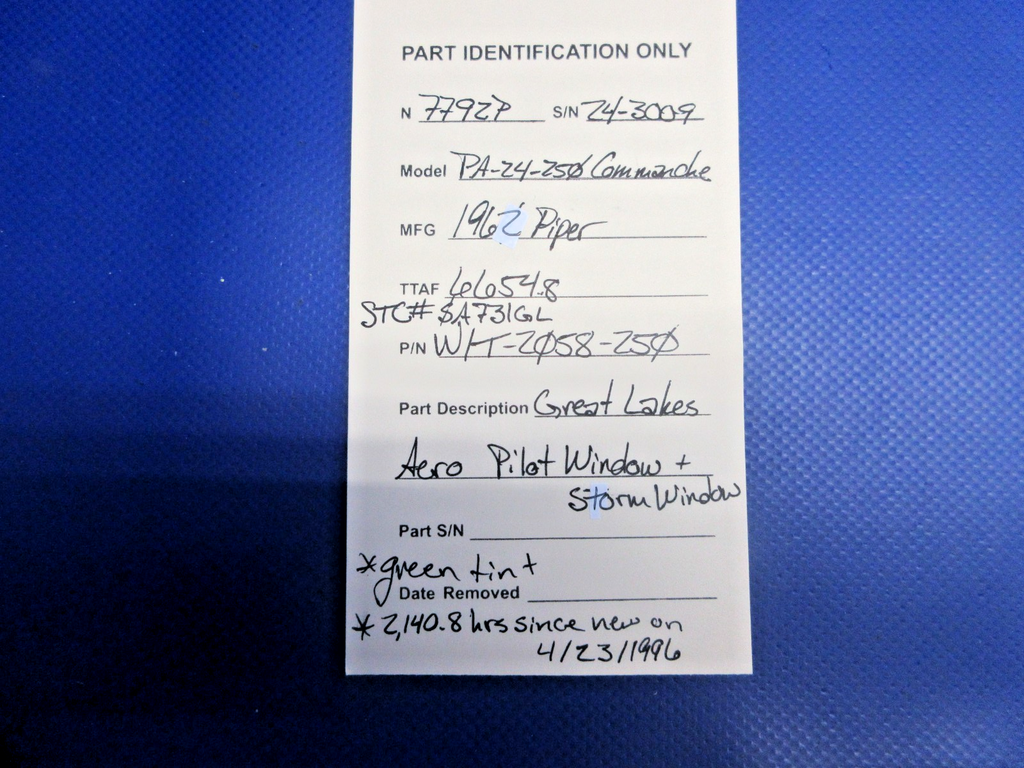 PART IDENTIFICATION ONLY
N 7792P S/N 24-3009
Model PA-24-250 Commanche
MFG 1962 Piper
TTAF 6654.8
STC# SA731GL
P/N W/T-2058-250
Part Description Great Lakes
Aero Pilot Window +
Storm Window
Part S/N
*green tint
Date Removed
* 2,140.8 hrs since new on
4/23/1996